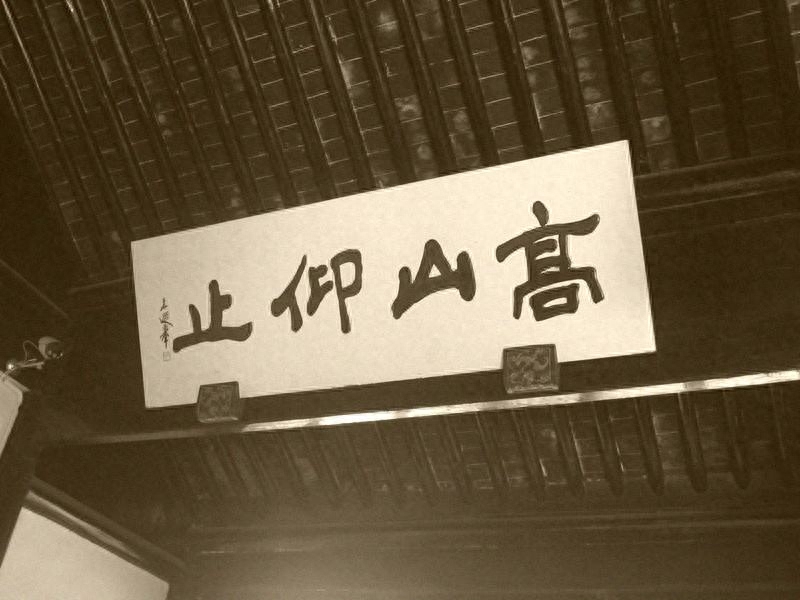 高山仰止